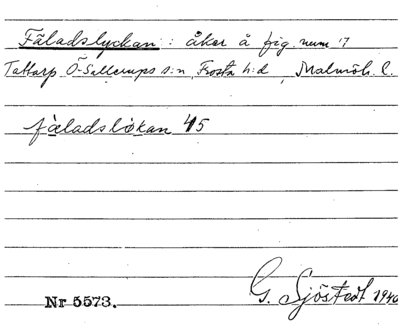 Fäladslyckan: åker å fig. num 17
Tattarp Ö-Sallerups s:n, Frosta h:d, Malmöh. l.
fäladslökan 45
Nr 5573.
G. Sjöstedt 1946